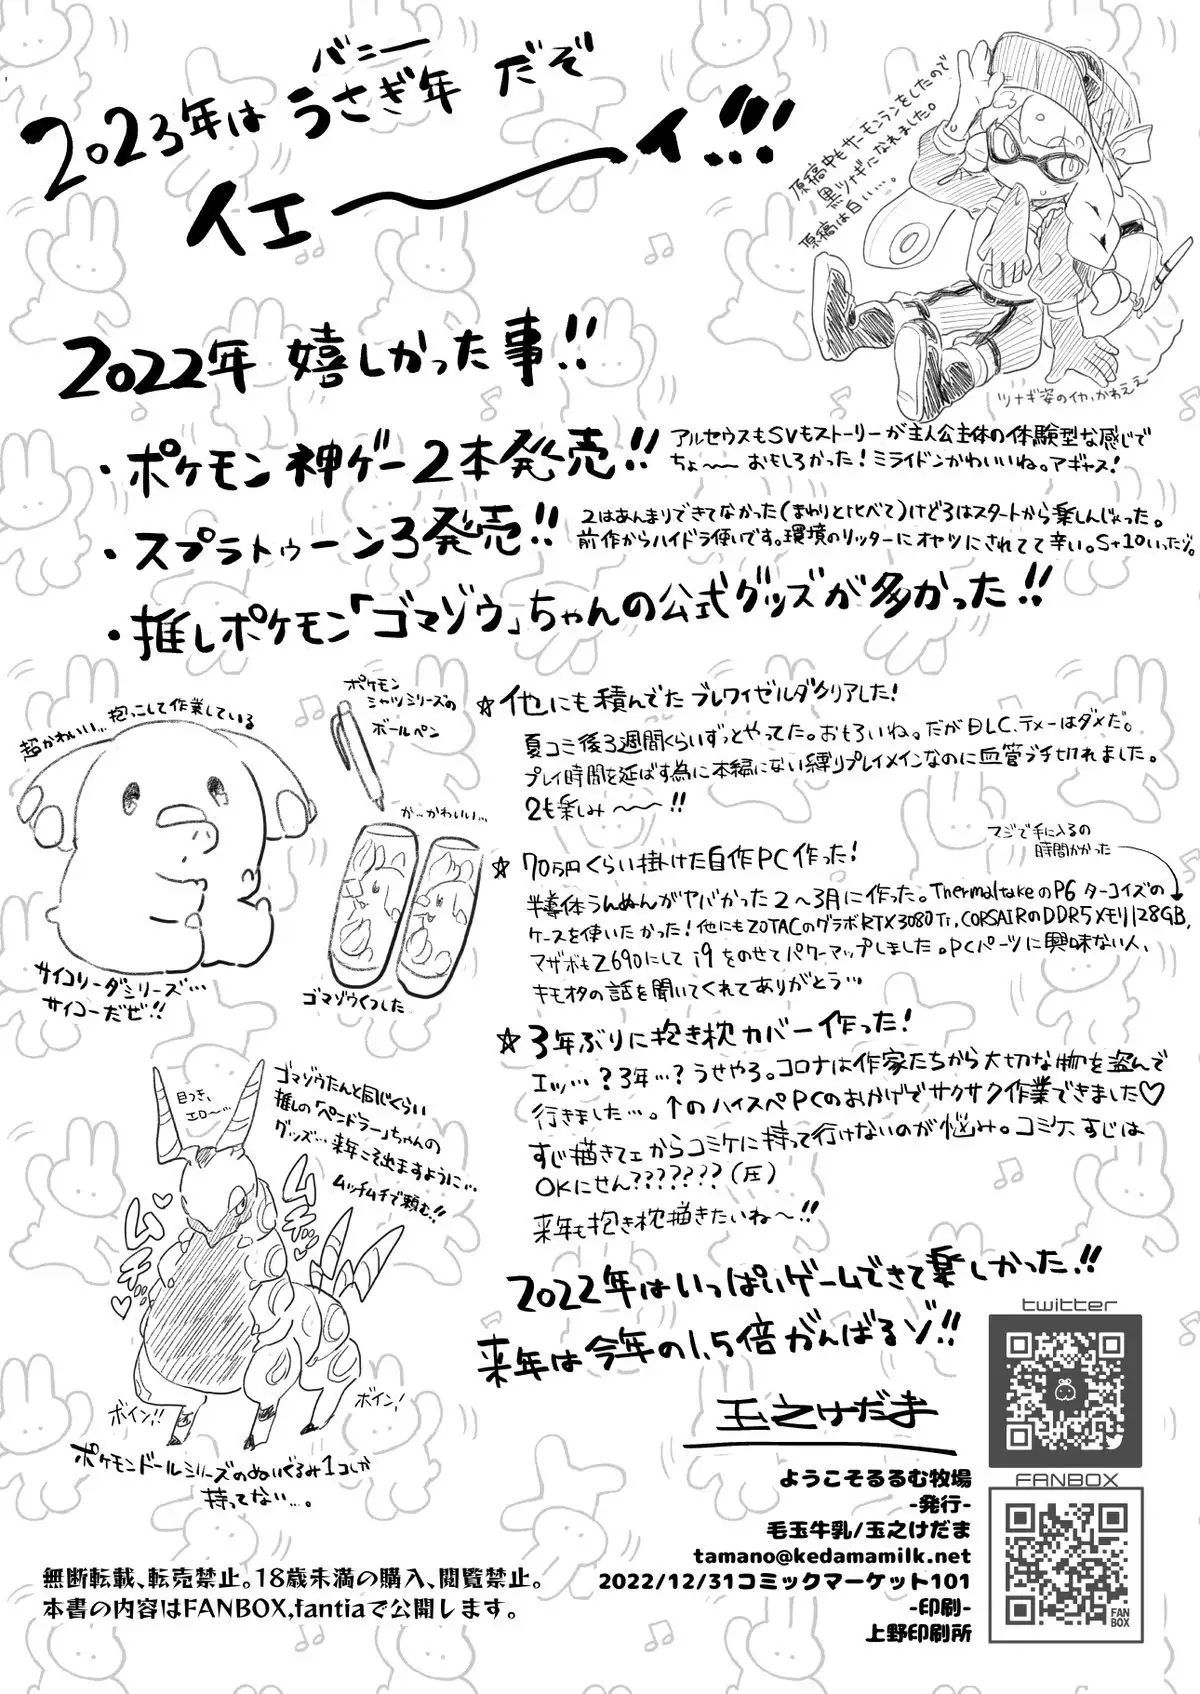 バニー
2023年はうさぎ年だぞ
イエ〜イ!!!
原稿中もサーモンランをしたので
黒ツナギになれました。
原稿は白い…。
ツナギ姿のイカ、かわええ
2022年 嬉しかった事!!
・ポケモン神ゲー2本発売!!
アルセウスもSVもストーリーが主人公主体の体験型な感じで
ちょ〜〜おもしろかった!ミライドンかわいいね。アギャス!
・スプラトゥーン3発売!!
2はあんまりできてなかった(まわりと比べて)けど3はスタートから楽しんじゃった。
前作からハイドラ使いです。環境のリッターにオヤツにされてて辛い。S+10いったゾ。
・推しポケモン「ゴマゾウ」ちゃんの公式グッズが多かった!!
超かわいい…抱っこして作業している
サイコソーダシリーズ…
サイコーだぜ!!
ポケモン
シャツシリーズの
ボールペン
か…かわいい…
ゴマゾウくつした
☆他にも積んでたブレワイゼルダクリアした!
夏コミ後3週間くらいずっとやってた。おもろいね。だがDLC、テメーはダメだ。
プレイ時間を延ばす為に本編にない縛りプレイメインなのに血管ブチ切れました。
2も楽しみ〜〜!!
☆70万円くらい掛けた自作PC作った!
マジで手に入るの
時間かかった
半導体うんぬんがヤバかった2〜3月に作った。ThermaltakeのP6ターコイズの
ケースを使いたかった!他にもZOTACのグラボRTX3080Ti,CORSAIRのDDR5メモリ128GB,
マザボもZ690にしてi9をのせてパワーマップしました。PCパーツに興味ない人、
キモオタの話を聞いてくれてありがとう…
☆3年ぶりに抱き枕カバー作った!
エッ…?3年…?うせやろ。コロナは作家たちから大切な物を盗んで
行きました…。↑のハイスペPCのおかげでサクサク作業できました♡
すじ描きてェからコミケに持って行けないのが悩み。コミケ、すじは
OKにせん???????(圧)
来年も抱き枕描きたいね〜!!
目つき、
エロ〜…
ゴマゾウたんと同じくらい
推しの「ペンドラー」ちゃんの
グッズ…来年こそ出ますように…
ムッチムチで頼む!!
ムチ…♡
ムチッ
ボイン!!
ボイン!
ポケモンドールシリーズのぬいぐるみ1コしか
持ってない…。
2022年はいっぱいゲームできて楽しかった!!
来年は今年の1.5倍がんばるゾ!!
玉之けだま
twitter
FANBOX
FAN
BOX
ようこそるるむ牧場
-発行-
毛玉牛乳/玉之けだま
tamano@kedamamilk.net
2022/12/31コミックマーケット101
-印刷-
上野印刷所
無断転載、転売禁止。18歳未満の購入、閲覧禁止。
本書の内容はFANBOX,fantiaで公開します。